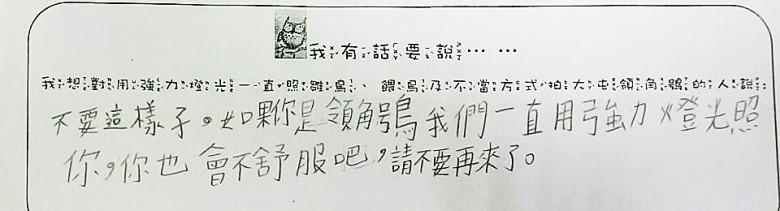 我有話要說… …
我想對用強力燈光一直照雛鳥、餵鳥及不當方式拍大屯領角鴞的人說：
不要這樣子。如果你是領角鴞我們一直用強力燈光照
你，你也會不舒服吧，請不要再來了。